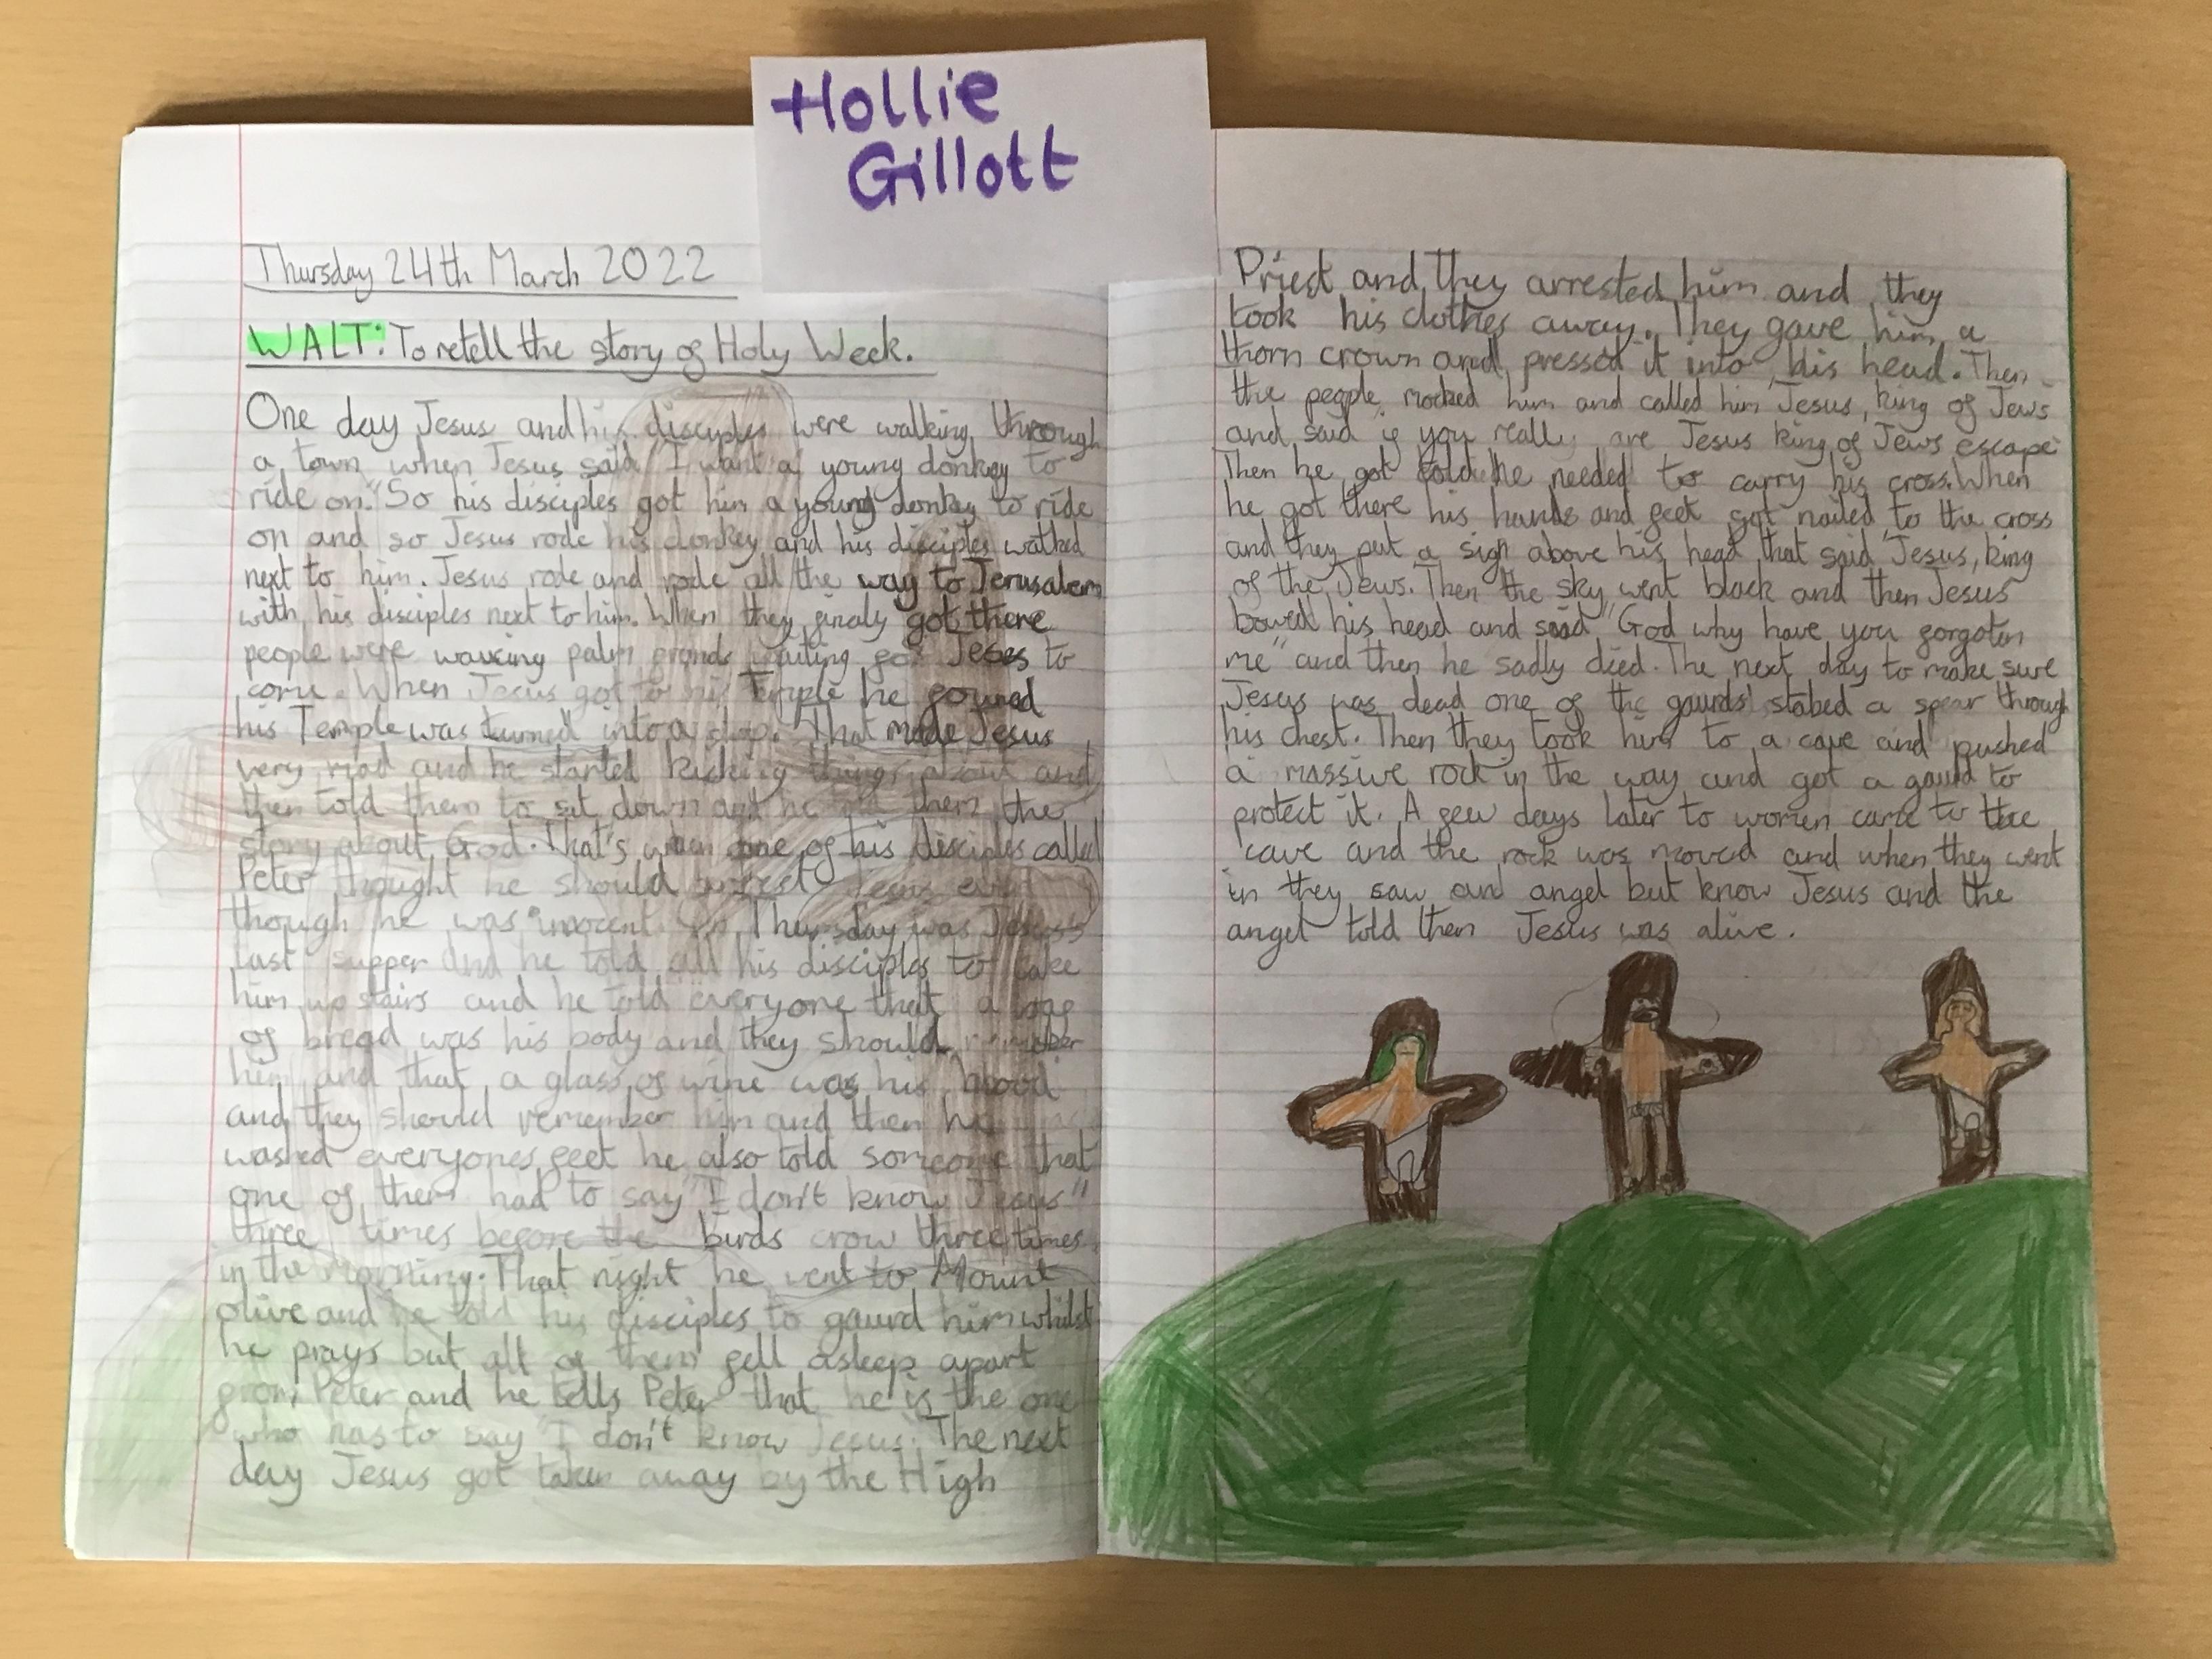 Hollie
Gillott
Thursday 24th March 2022
WALT: To retell the story of Holy Week.
One day Jesus and his disciples were walking through
a town when Jesus said "I want a young donkey to
ride on." So his disciples got him a young donkey to ride
on and so Jesus rode his donkey and his disciples walked
next to him. Jesus rode and rode all the way to Jerusalem
with his disciples next to him. When they finaly got there
people were waveing palm fronds waiting for Jeses to
come. When Jesus got to his Temple he founed
his Temple was turned into a shop. That made Jesus
very mad and he started kicking things about and
then told them to sit down and he told them the
story about God. That's when one of his disciples called
Peter thought he should arrest Jesus even
though he was innocent. On Thursday was Jesus's
last supper and he told all his disciples to take
him up stairs and he told everyone that a loaf
of bread was his body and they should remember
him and that a glass of wine was his blood
and they should remember him and then he
washed everyones feet he also told someone that
one of them had to say "I don't know Jesus"
three times before the birds crow three times
in the morning. That night he went to Mount
olive and he told his disciples to gaurd him whilst
he prays but all of them fell asleep apart
from Peter and he tells Peter that he is the one
who has to say "I don't know Jesus. The next
day Jesus got taken away by the High
Priest and they arrested him and they
took his clothes away. They gave him a
thorn crown and pressed it into his head. Then
the people mocked him and called him Jesus, king of Jews
and said if you really are Jesus king of Jews escape
Then he got told he needed to carry his cross. When
he got there his hands and feet got nailed to the cross
and they put a sign above his head that said Jesus, king
of the Jews. Then the sky went black and then Jesus
bowed his head and said "God why have you forgoten
me" and then he sadly died. The next day to make sure
Jesus was dead one of the gaurds stabed a spear through
his chest. Then they took him to a cave and pushed
a massive rock in the way and got a gaurd to
protect it. A few days later to women came to the
cave and the rock was moved and when they went
in they saw and angel but know Jesus and the
angel told then Jesus was alive.